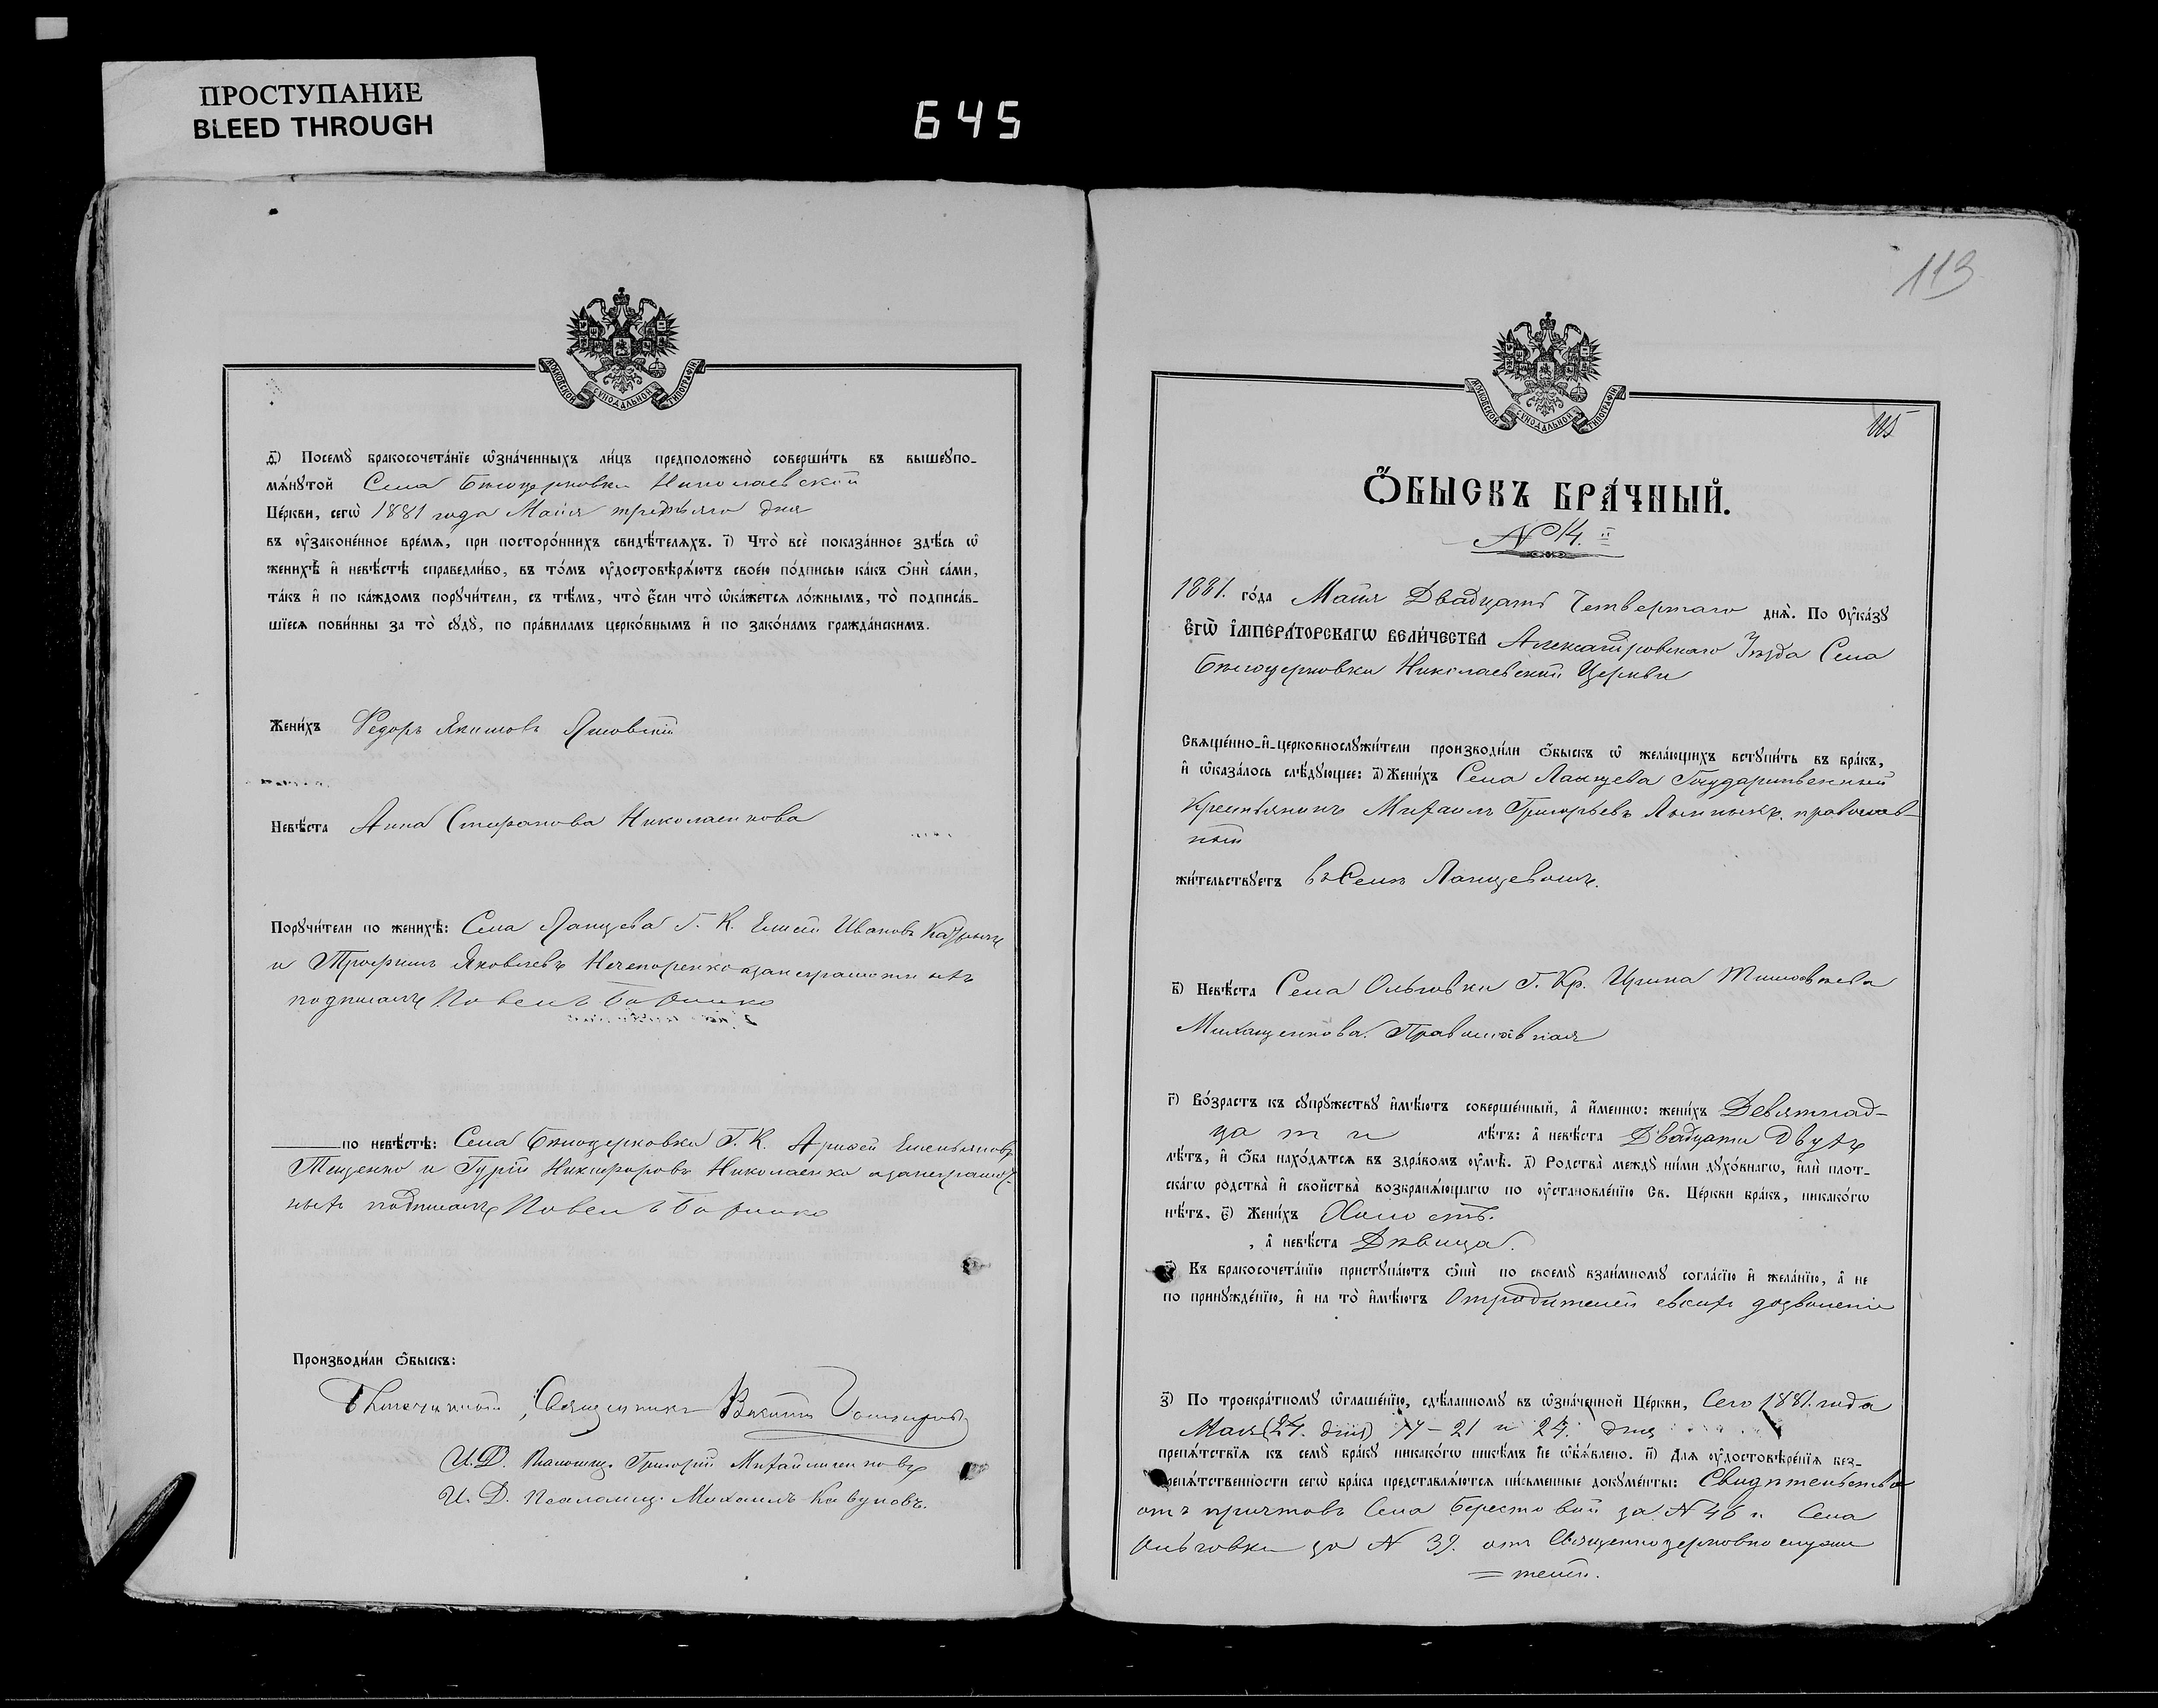 ПРОСТУПАНИЕ
BLEED THROUGH
645
МОСКОВСКОЙ СѴНОДАЛЬНОЙ ТИПОГРАФІИ
д҃) Посемꙋ бракосочета́нїе ѡ҆зна́ченныхъ ли́цъ предположено̀ соверши́ть въ вышеꙋпо-
мѧ́нꙋтой Села Бѣлоцерковки Николаевской
Це́ркви, сегѡ̀ 1881 года Маія третьяго дня
въ ᲂу҆законе́нное вре́мѧ, при посторо́ннихъ свидѣ́телѧхъ. і҃) Что̀ всѐ показа́нное здѣ́сь ѡ҆
женихѣ̀ и҆ невѣ́стѣ справедли́во, въ то́мъ ᲂу҆достовѣрѧ́ютъ свое́ю по́дписью ка́къ ѻ҆нѝ са́ми,
та́къ и҆ по ка́ждомъ порꙋчи́тели, съ тѣ́мъ, что̀ є҆́сли что̀ ѡ҆ка́жетсѧ ло́жнымъ, то̀ подписа́в-
шїесѧ пови́нны за то̀ сꙋдꙋ̀, по пра́виламъ церко́внымъ и҆ по зако́намъ гражда́нскимъ.
Жени́хъ Федоръ Якимовъ
Невѣ́ста Анна Стефанова Николаенкова
Порꙋчи́тели по женихѣ̀: Села Ланцева Г. К. Елисей Ивановъ
и Трофимъ Яковлевъ Нечепоренко
подписалъ Павелъ
по невѣ́стѣ: Села Бѣлоцерковки Г. К. Емельяновъ
Тещенко и Гурій Никифоровъ Николаенко а за неграмот-
ныхъ подписалъ Павелъ
Производи́ли ѻ҆́быскъ:
Священникъ
И. Д. Псаломщ. Григорій Михайличенковъ
И. Д. Псаломщ. Михаилъ Кавуновъ.
113
МОСКОВСКОЙ СѴНОДАЛЬНОЙ ТИПОГРАФІИ
115
Ѻ҆́БЫСКЪ БРА́ЧНЫЙ.
№ 14.й
1881. го́да Маія Двадцать Четвертаго днѧ̀. По Оу҆ка́зꙋ
Є҆ГѠ̀ І҆МПЕРА́ТОРСКАГѠ ВЕЛИ́ЧЕСТВА Александровскаго Уѣзда Села
Бѣлоцерковки Николаевской Церкви
Свѧще́нно-и҆-церковнослꙋжи́тели производи́ли ѻ҆́быскъ ѡ҆ жела́ющихъ встꙋпи́ть въ бра́къ,
и҆ ѡ҆каза́лось слѣ́дꙋющее: а҃) Жени́хъ Села Ланцева Государственный
Крестьянинъ Михаилъ Григорьевъ православ-
ный
жи́тельствꙋетъ въ Селѣ Ланцевомъ.
в҃) Невѣ́ста Села Ольговки Г. Кр. Ирина Тимофѣева
Михащенкова. Православная
г҃) Во́зрастъ къ сꙋпрꙋ́жествꙋ и҆мѣ́ютъ соверше́нный, а҆ и҆́меннѡ: жени́хъ Девятнад-
цати лѣ́тъ: а҆ невѣ́ста Двадцати двухъ
лѣ́тъ, и҆ ѻ҆́ба нахо́дѧтсѧ въ здра́вомъ ᲂу҆мѣ̀. д҃) Родства̀ междꙋ̀ ни́ми дꙋхо́внагѡ, и҆лѝ плот-
ска́гѡ родства̀ и҆ сво́йства возбранѧ́ющагѡ по ᲂу҆становле́нїю Св. Це́ркви бра́къ, никако́гѡ
нѣ́тъ. є҃) Жени́хъ Холостъ.
, а҆ невѣ́ста Дѣвица.
ѕ҃) Къ бракосочета́нїю пристꙋпа́ютъ ѻ҆нѝ по своемꙋ̀ взаи́мномꙋ согла́сїю и҆ жела́нїю, а҆ не
по принꙋжде́нїю, и҆ на то̀ и҆мѣ́ютъ Отъ родителей своихъ дозволеніе
з҃) По троекра́тномꙋ ѡ҆глаше́нїю, сдѣ́ланномꙋ въ ѡ҆зна́ченной Це́ркви, Сего 1881. года
Маія (24. дня) 17 - 21 и 24. дня
препѧ́тствїѧ къ семꙋ̀ бра́кꙋ никако́гѡ никѣ́мъ не ѡ҆б̾ѧ́влено. и҃) Длѧ ᲂу҆достовѣре́нїѧ без-
препѧ́тственности сегѡ̀ бра́ка представлѧ́ютсѧ пи́сьменные докꙋме́нты: Свидѣтельства
отъ причтовъ Села Берестовой за № 46 и Села
Ольговки за № 39. отъ Священноцерковнослужи
=телей.